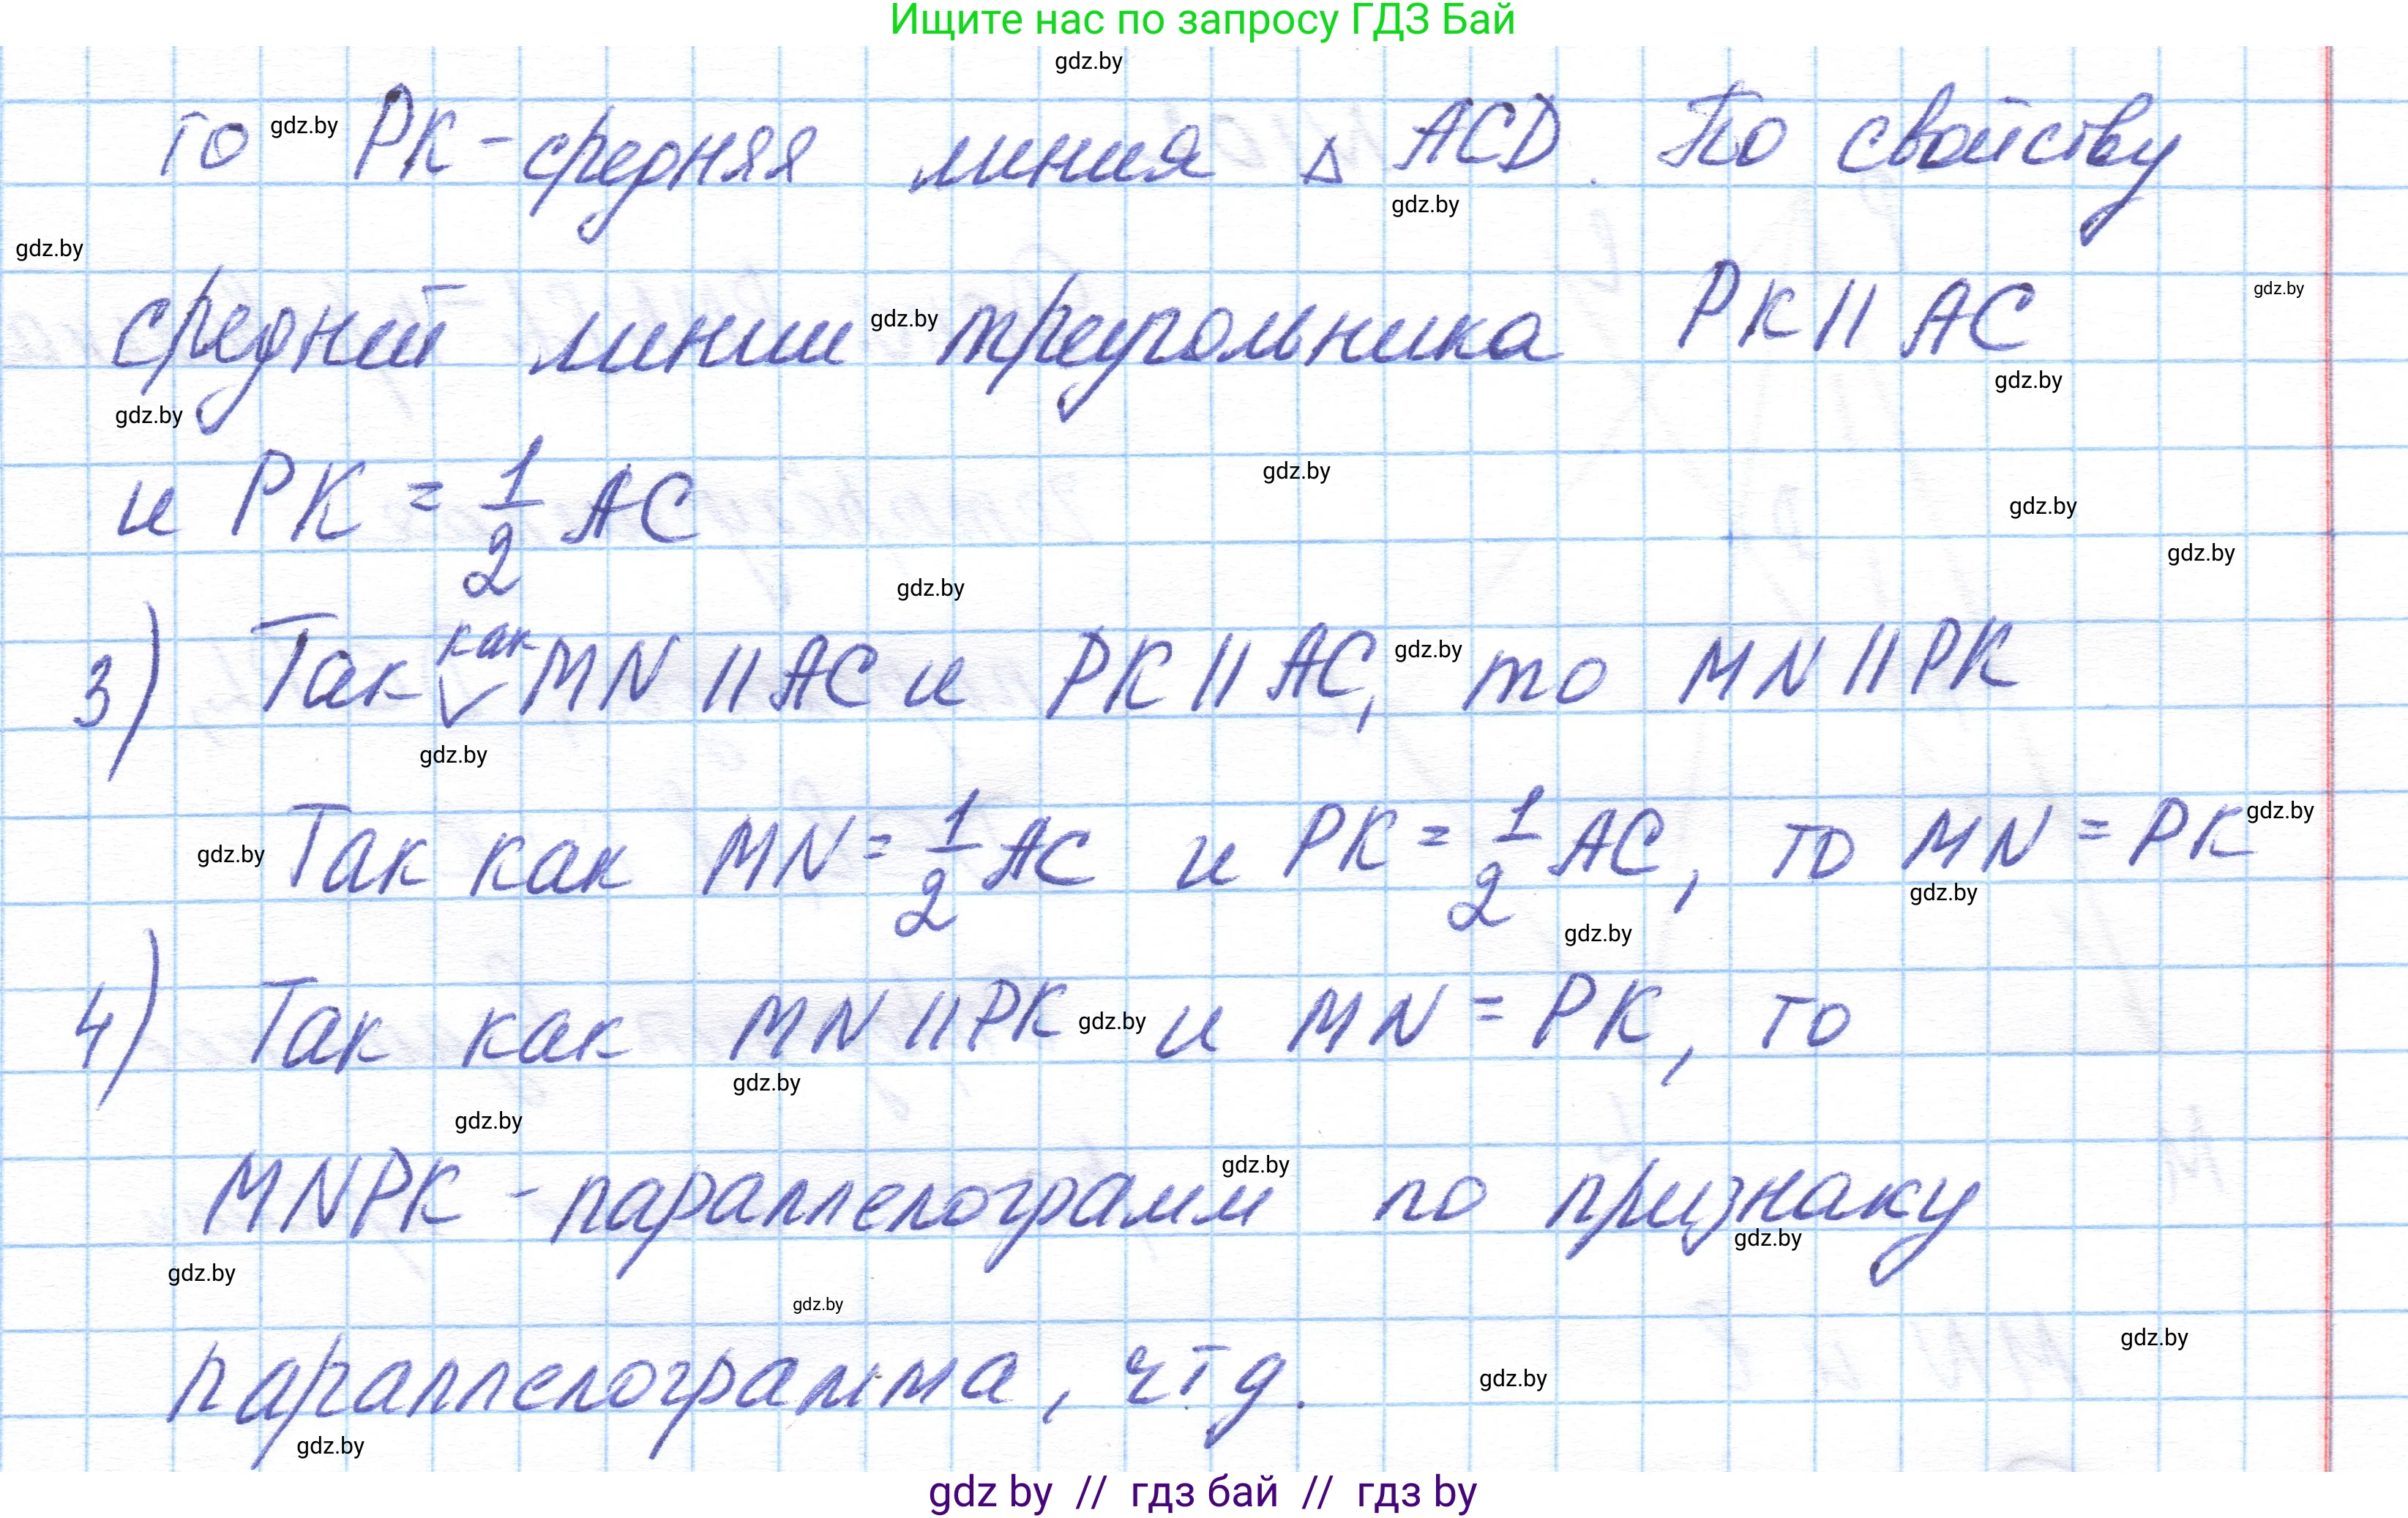 Ищите нас по запросу ГДЗ Бай
gdz.by
то gdz.by PK - средняя линия △ ACD. По свойству
gdz.by
gdz.by
средней линии gdz.by треугольника PK || AC gdz.by
gdz.by
gdz.by
и PK = 1/2 AC gdz.by
gdz.by
gdz.by
gdz.by
3) Так как MN || AC и PK || AC, gdz.by то MN || PK
gdz.by
gdz.by Так как MN = 1/2 AC и PK = 1/2 AC, то MN = PK gdz.by
gdz.by
gdz.by
4) Так как MN || PK gdz.by и MN = PK, то
gdz.by
gdz.by
gdz.by
MNPK - параллелограмм по признаку
gdz.by
gdz.by
gdz.by
gdz.by
параллелограмма, чтд. gdz.by
gdz.by
gdz by // гдз бай // гдз by